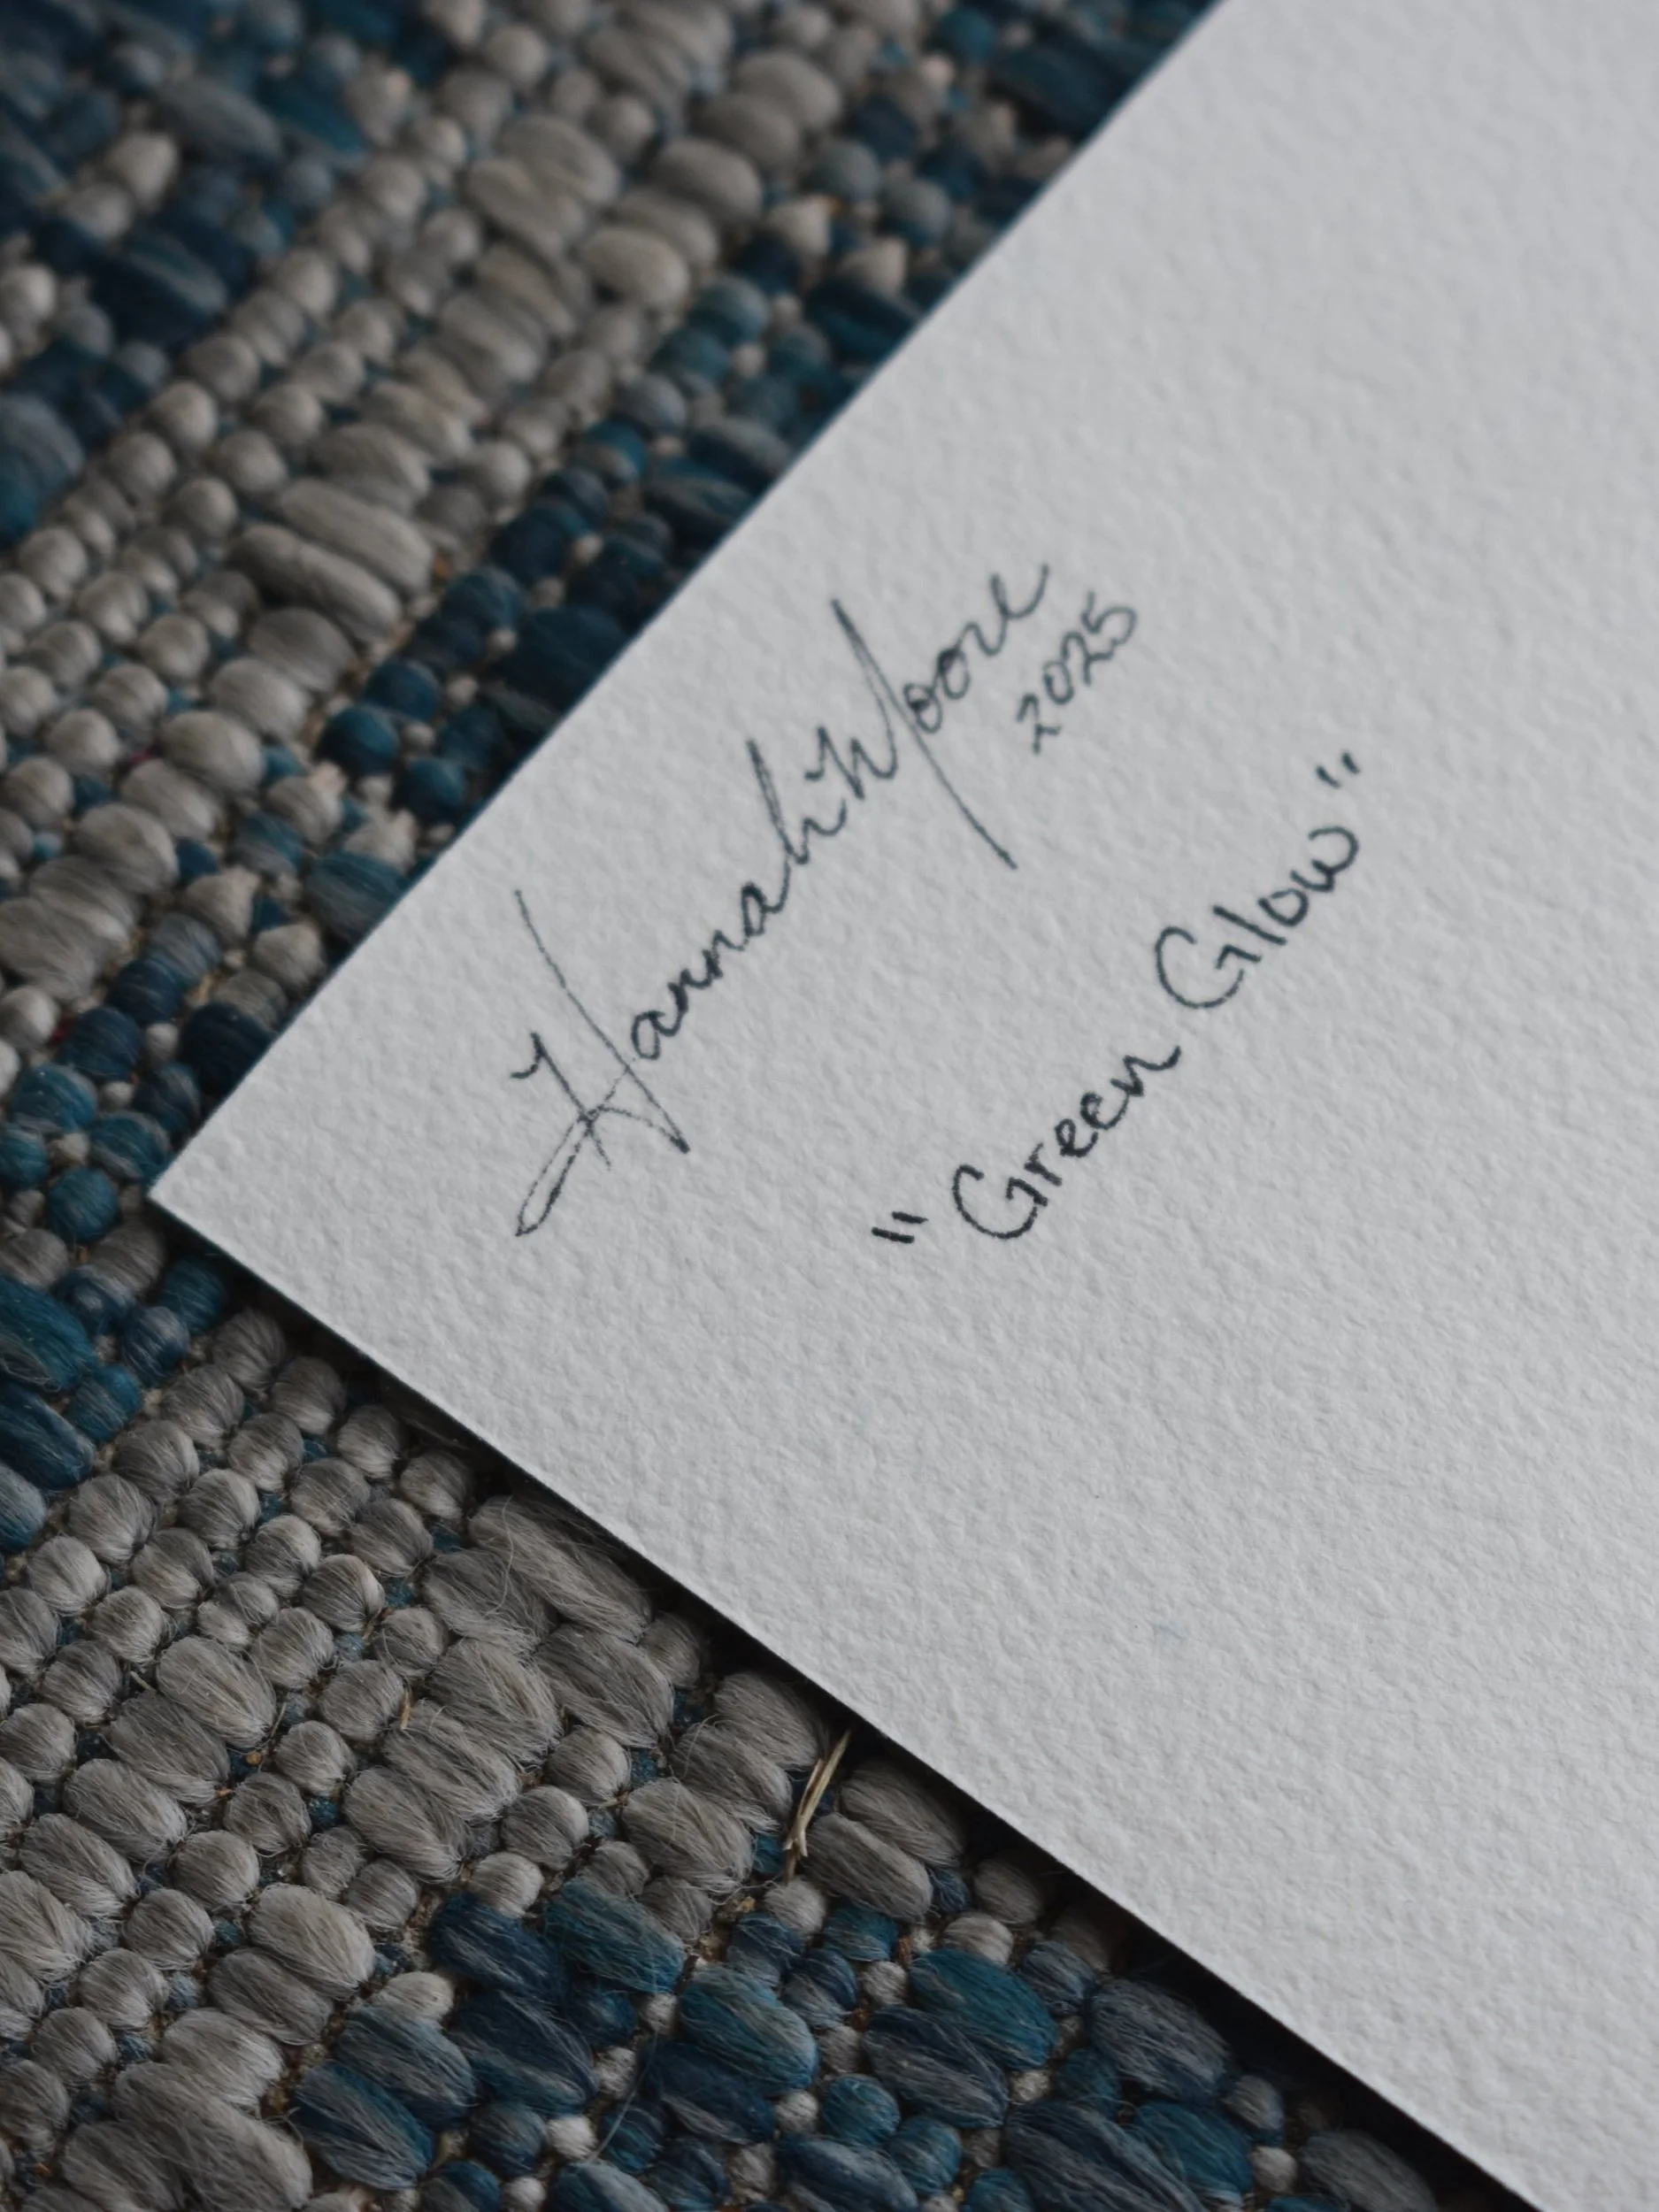 Hannah Moore
2025
"Green Glow"